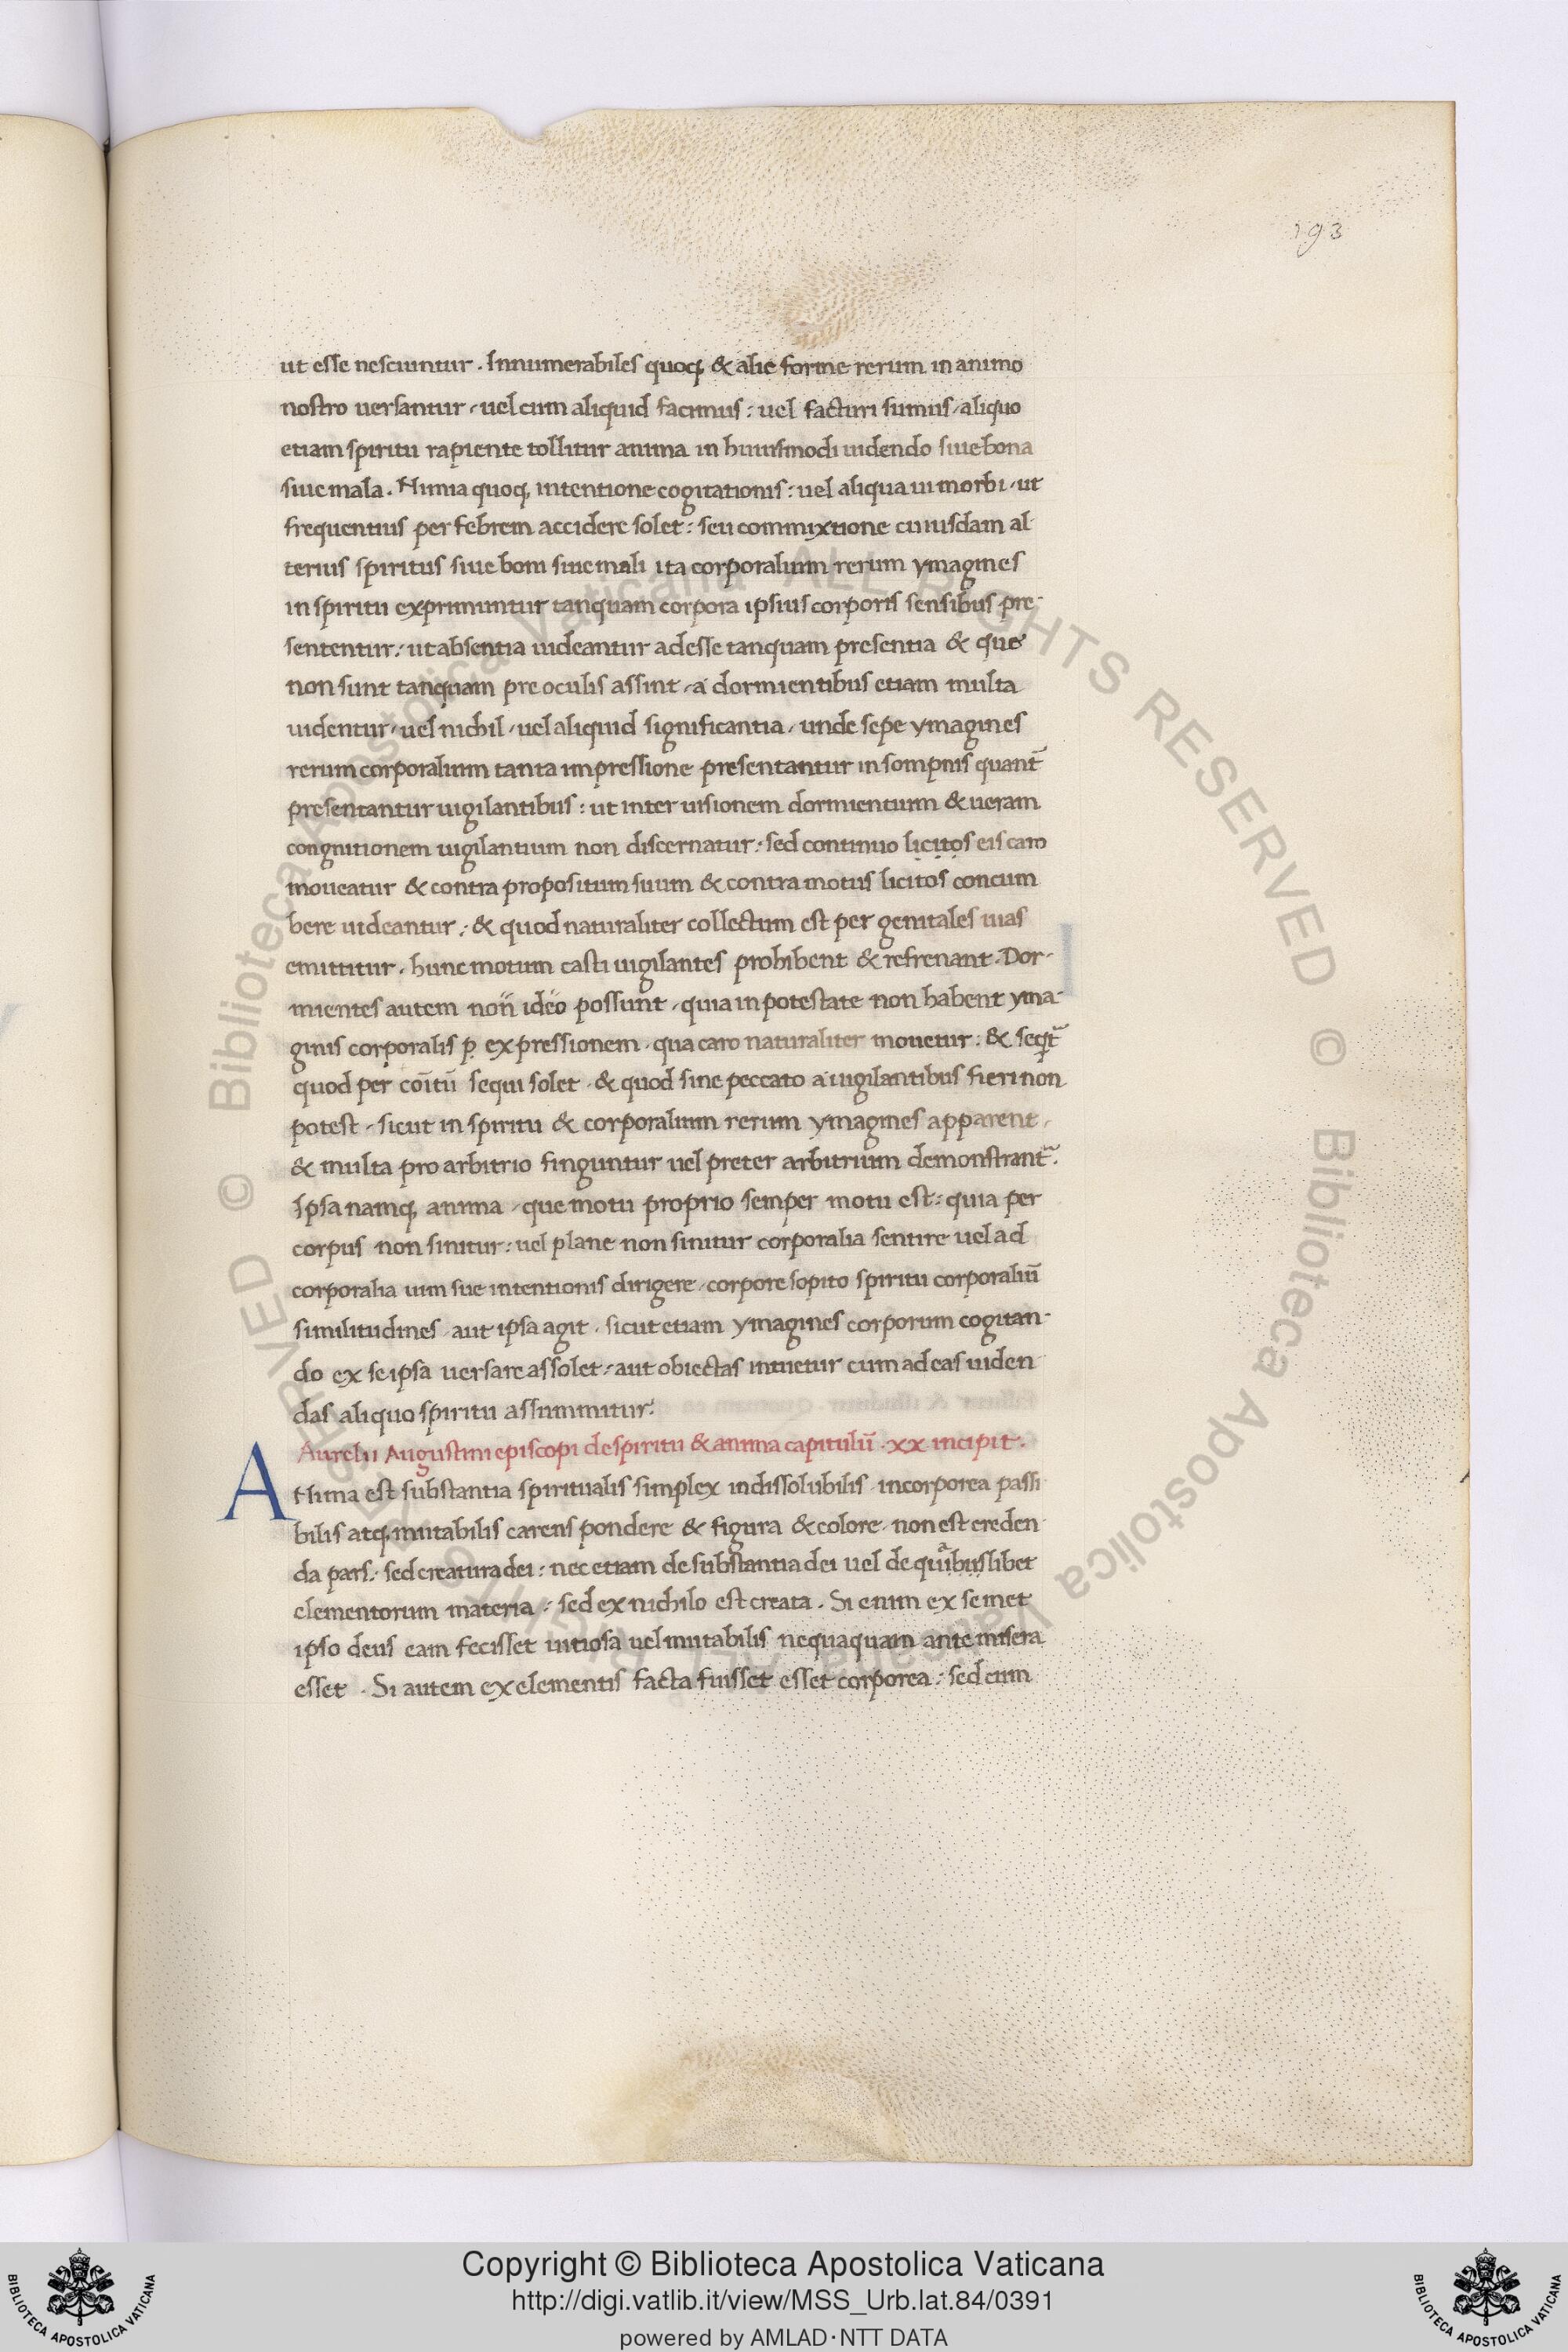 193
ut esse nesciuntur . Innumerabiles quoq; & alie forme rerum in animo
nostro uersantur , uel cum aliquid facimus : uel facturi sumus , aliquo
etiam spiritu rapiente tollitur anima in huiusmodi uidendo siue bona
siue mala . Nimia quoq; intentione cogitationis : uel aliqua ui morbi , ut
frequentius per febrem accidere solet : seu commixtione cuiusdam al
terius spiritus siue boni siue mali ita corporalium rerum ymagines
in spiritu exprimuntur tanquam corpora ipsius corporis sensibus pre-
sententur : ut absentia uideantur adesse tanquam presentia & que
non sunt tanquam pre oculis assint , a dormientibus etiam multa
uidentur , uel nichil , uel aliquid significantia , unde sepe ymagines
rerum corporalium tanta impressione presentantur in sompnis quant̃
presentantur uigilantibus : ut inter uisionem dormientium & ueram
congnitionem uigilantium non discernatur : sed continuo licitos eis caro
moueatur & contra propositum suum & contra motus licitos concum
bere uideantur : & quod naturaliter collectum est per genitales uias
emittitur . hunc motum casti uigilantes prohibent & refrenant . Dor-
mientes autem non ideo possunt , quia in potestate non habent yma-
ginis corporalis p. expressionem , qua caro naturaliter mouetur : & seqt̃
quod per coitū sequi solet , & quod sine peccato a uigilantibus fieri non
potest , sicut in spiritu & corporalium rerum ymagines apparent ,
& multa pro arbitrio finguntur uel preter arbitrium demonstrant̃ .
Ipsa namq; anima , que motu proprio semper motu est : quia per
corpus non sinitur : uel plane non sinitur corporalia sentire uel ad
corporalia uim sue intentionis dirigere , corpore sopito spiritu corporaliū
similitudines , aut ipsa agit , sicut etiam ymagines corporum cogitan-
do ex se ipsa uersare assolet , aut obiectas intuetur cum ad eas uiden
das aliquo spiritu assummitur .
Aurelii Augustini episcopi de spiritu & anima capitulū . xx incipit .
ANima est substantia spiritualis simplex indissolubilis , incorporea passi
bilis atq; mutabilis carens pondere & figura & colore , non est creden
da pars : sed creatura dei : nec etiam de substantia dei uel de quibuslibet
elementorum materia : sed ex nichilo est creata . Si enim ex semet
ipso deus eam fecisset uitiosa uel mutabilis nequaquam ante misera
esset . Si autem ex elementis facta fuisset esset corporea : sed cum
© Biblioteca Apostolica Vaticana ALL RIGHTS RESERVED
© Biblioteca Apostolica Vaticana ALL RIGHTS RESERVED
Copyright © Biblioteca Apostolica Vaticana
http://digi.vatlib.it/view/MSS_Urb.lat.84/0391
powered by AMLAD·NTT DATA
BIBLIOTECA APOSTOLICA VATICANA
BIBLIOTECA APOSTOLICA VATICANA